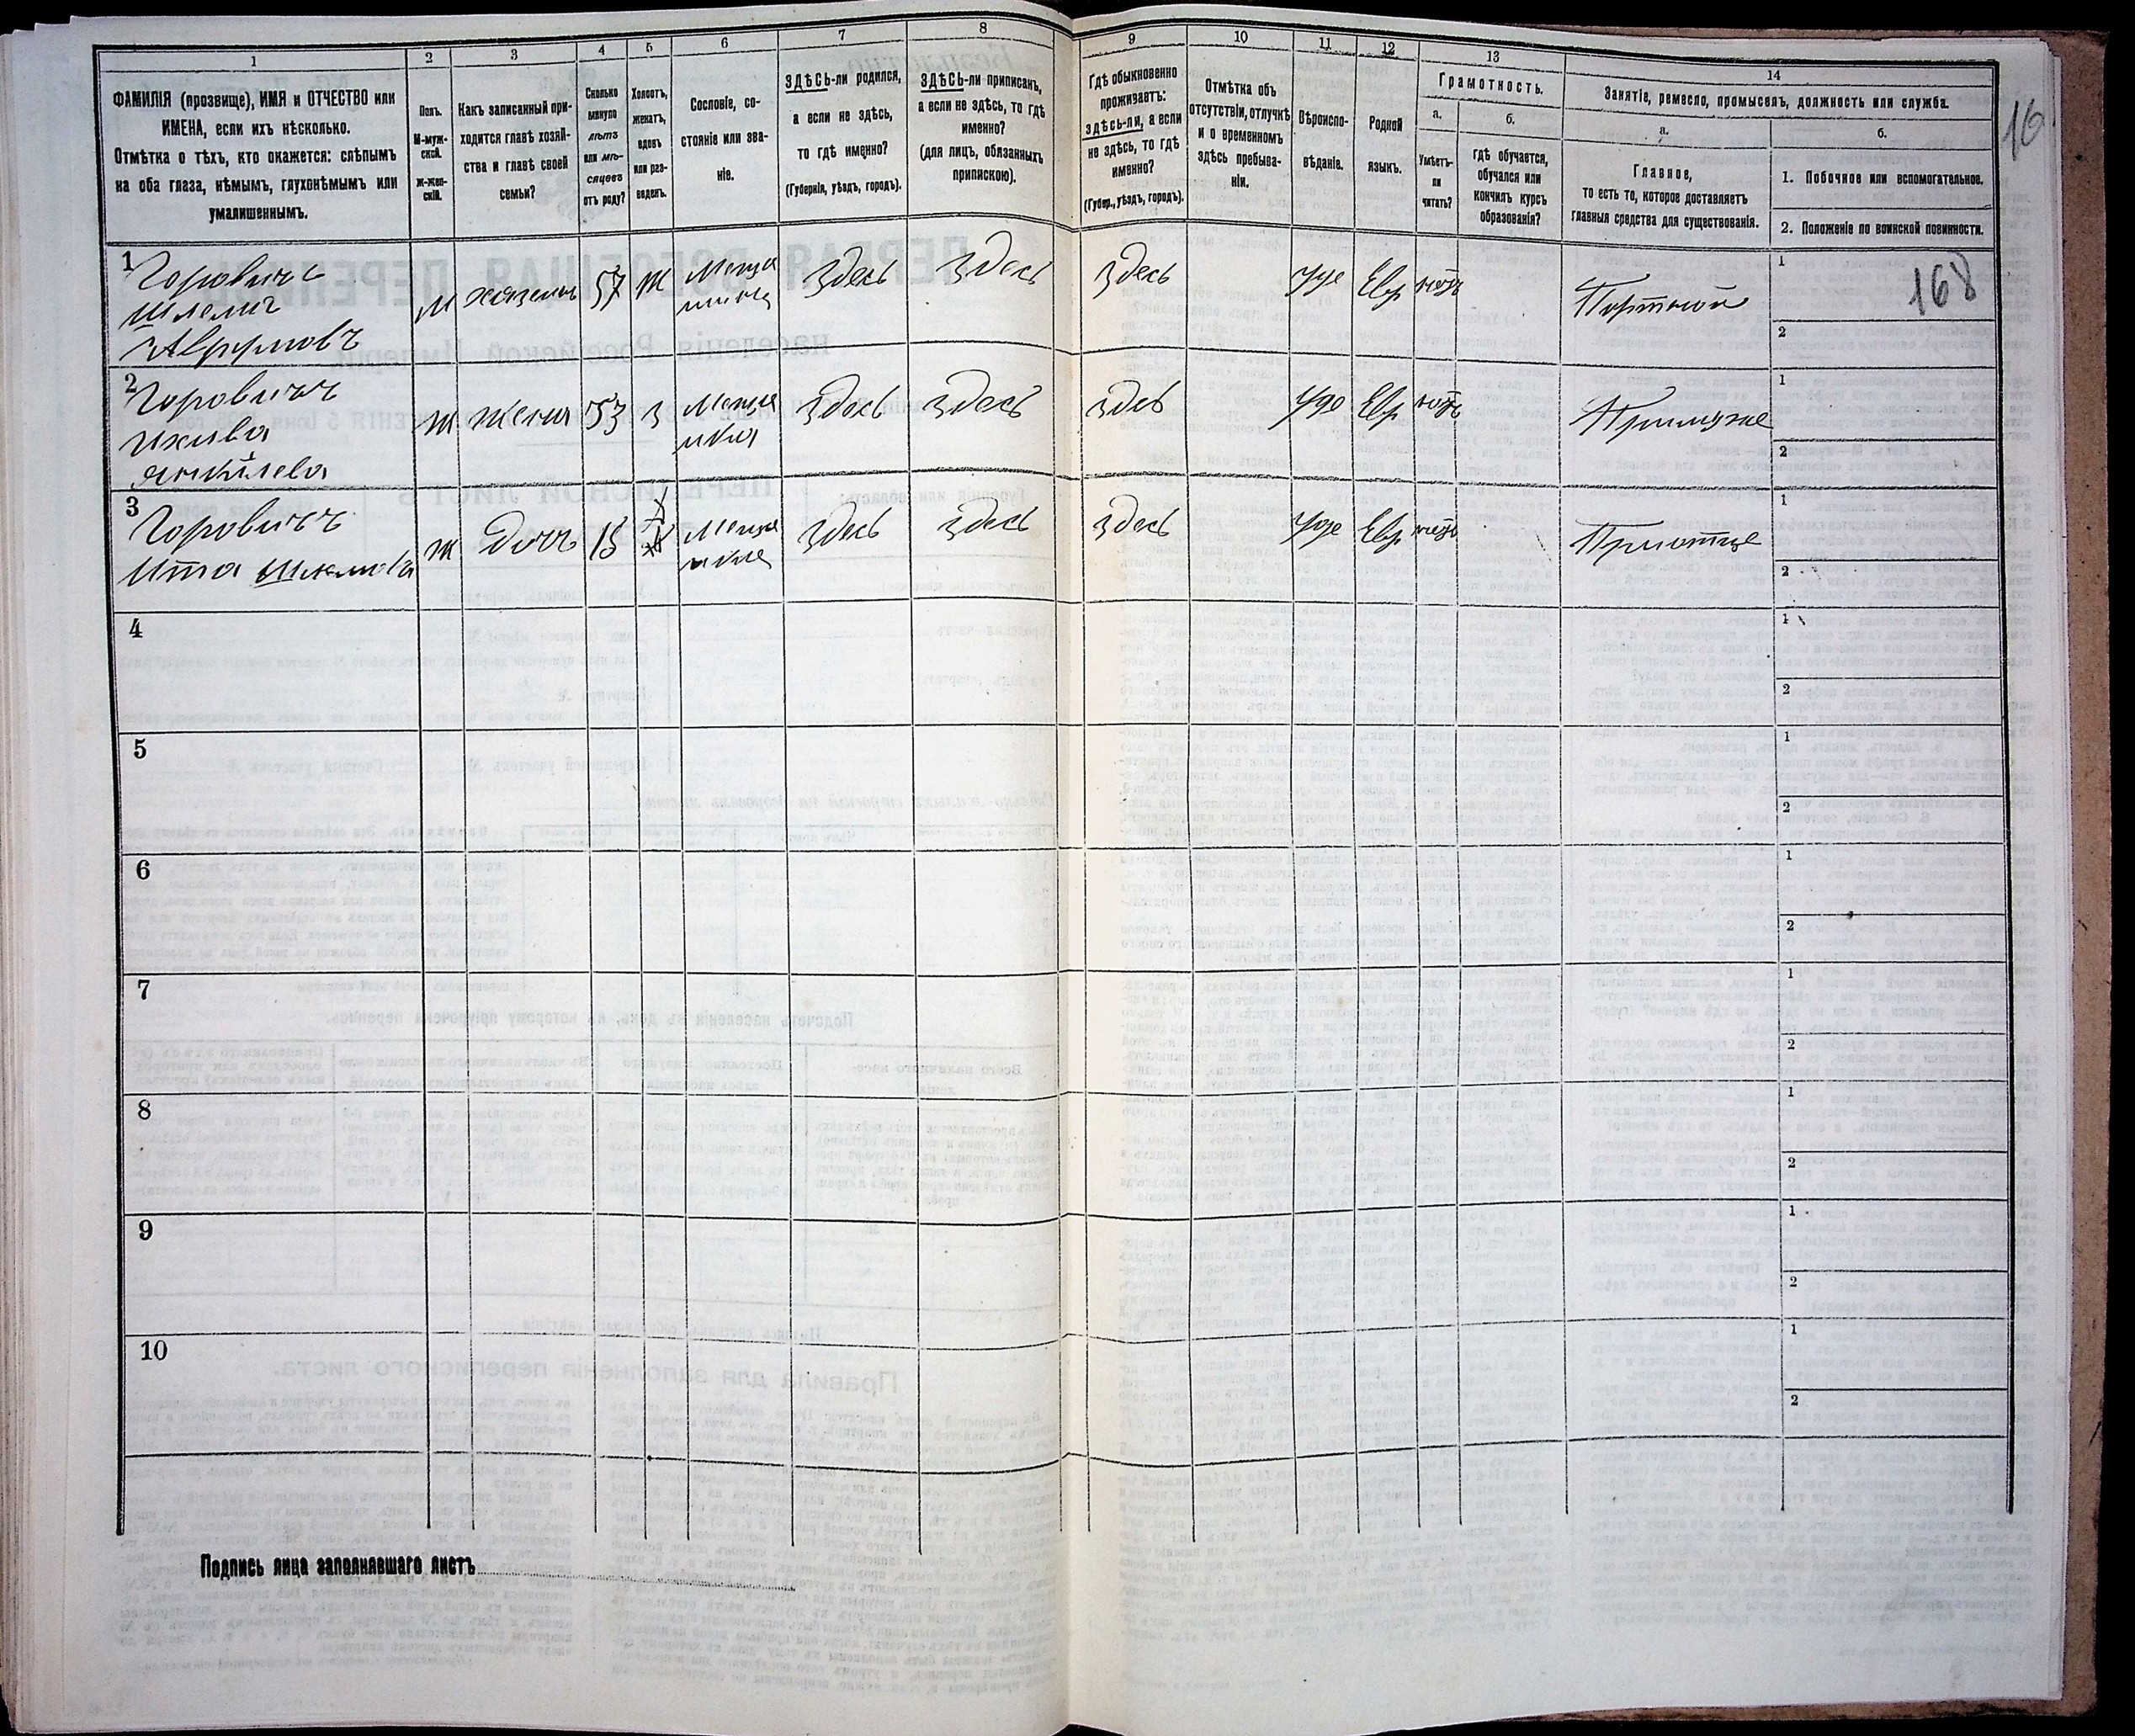 1 2 3 4 5 6 7 8 9 10 11 12 13 14
ФАМИЛІЯ (прозвище), ИМЯ и ОТЧЕСТВО или
ИМЕНА, если ихъ нѣсколько.
Отмѣтка о тѣхъ, кто окажется: слѣпымъ
на оба глаза, нѣмымъ, глухонѣмымъ или
умалишеннымъ.
Полъ.
М-муж-
ской.
Ж-жен-
скій.
Какъ записанный при-
ходится главѣ хозяй-
ства и главѣ своей
семьи?
Сколько
минуло
лѣтъ
или мѣ-
сяцевъ
отъ роду?
Холостъ,
женатъ,
вдовъ
или раз-
веденъ.
Сословіе, со-
стояніе или зва-
ніе.
ЗДѢСЬ-ли родился,
а если не здѣсь,
то гдѣ именно?
(Губернія, уѣздъ, городъ).
ЗДѢСЬ-ли приписанъ,
а если не здѣсь, то гдѣ
именно?
(для лицъ, обязанныхъ
припискою).
Гдѣ обыкновенно
проживаетъ:
здѣсь-ли, а если
не здѣсь, то гдѣ
именно?
(Губер., уѣздъ, городъ).
Отмѣтка объ
отсутствіи, отлучкѣ
и о временномъ
здѣсь пребыва-
ніи.
Вѣроиспо-
вѣданіе.
Родной
языкъ.
Грамотность.
а.
Умѣетъ-
ли
читать?
б.
гдѣ обучается,
обучался или
кончилъ курсъ
образованія?
Занятіе, ремесло, промыселъ, должность или служба.
а.
Главное,
то есть то, которое доставляетъ
главныя средства для существованія.
б.
1. Побочное или вспомогательное.
2. Положеніе по воинской повинности.
16
168
1 Горовичъ
Шлема
М хозяинъ 57 Ж Меща Здесь Здесь Здесь Іуде Евр нѣтъ Портной 1
нинъ
2
2 Горовичъ
Янкелева
Ж Жена 53 З Меща Здесь Здесь Іуде Евр нѣтъ При муже 1
нка
2
3 Горовичъ
Ита Шлемова
Ж Дочь Меща Здесь Здесь Здесь Іуде Евр нѣтъ При отце 1
2
4 1
2
5 1
2
6 1
2
7 1
2
8 1
2
9 1
2
10 1
2
Подпись лица заполнявшаго листъ